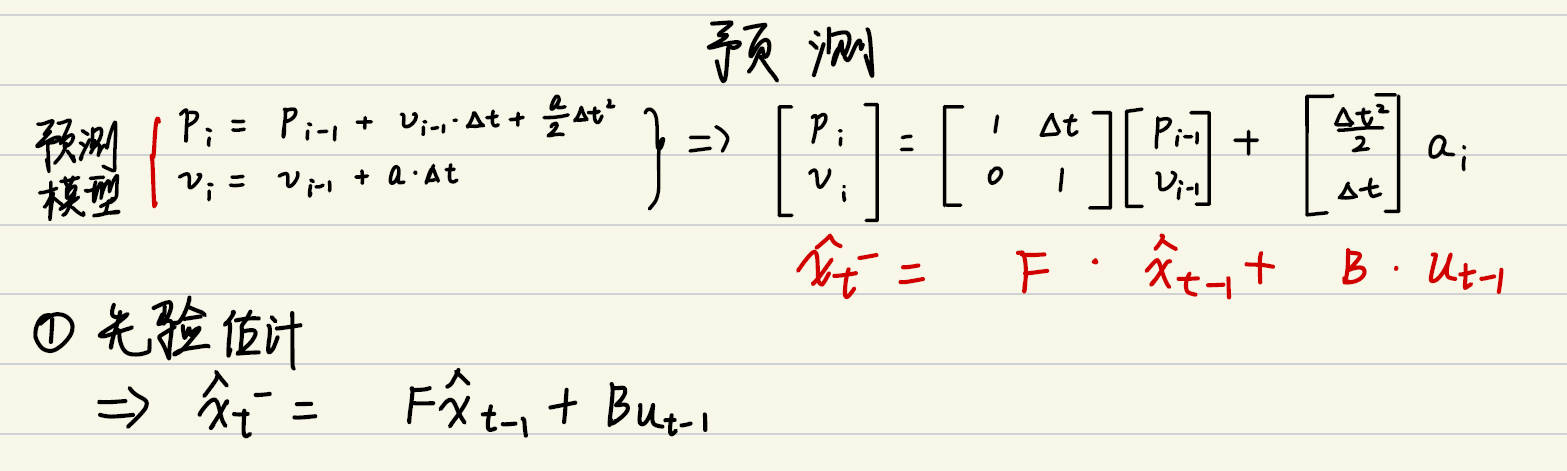 预测
预测模型 { p_i = p_{i-1} + v_{i-1}·Δt + \frac{a}{2}Δt²
v_i = v_{i-1} + a·Δt } => [p_i; v_i] = [1 Δt; 0 1][p_{i-1}; v_{i-1}] + [\frac{Δt²}{2}; Δt] a_i
\hat{x}_t^- = F · \hat{x}_{t-1} + B · u_{t-1}
① 先验估计
=> \hat{x}_t^- = F\hat{x}_{t-1} + Bu_{t-1}